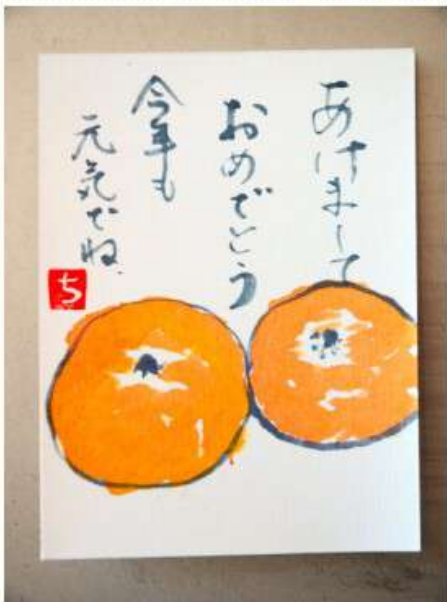 あけまして
おめでとう
今年も
元気でね、
ち